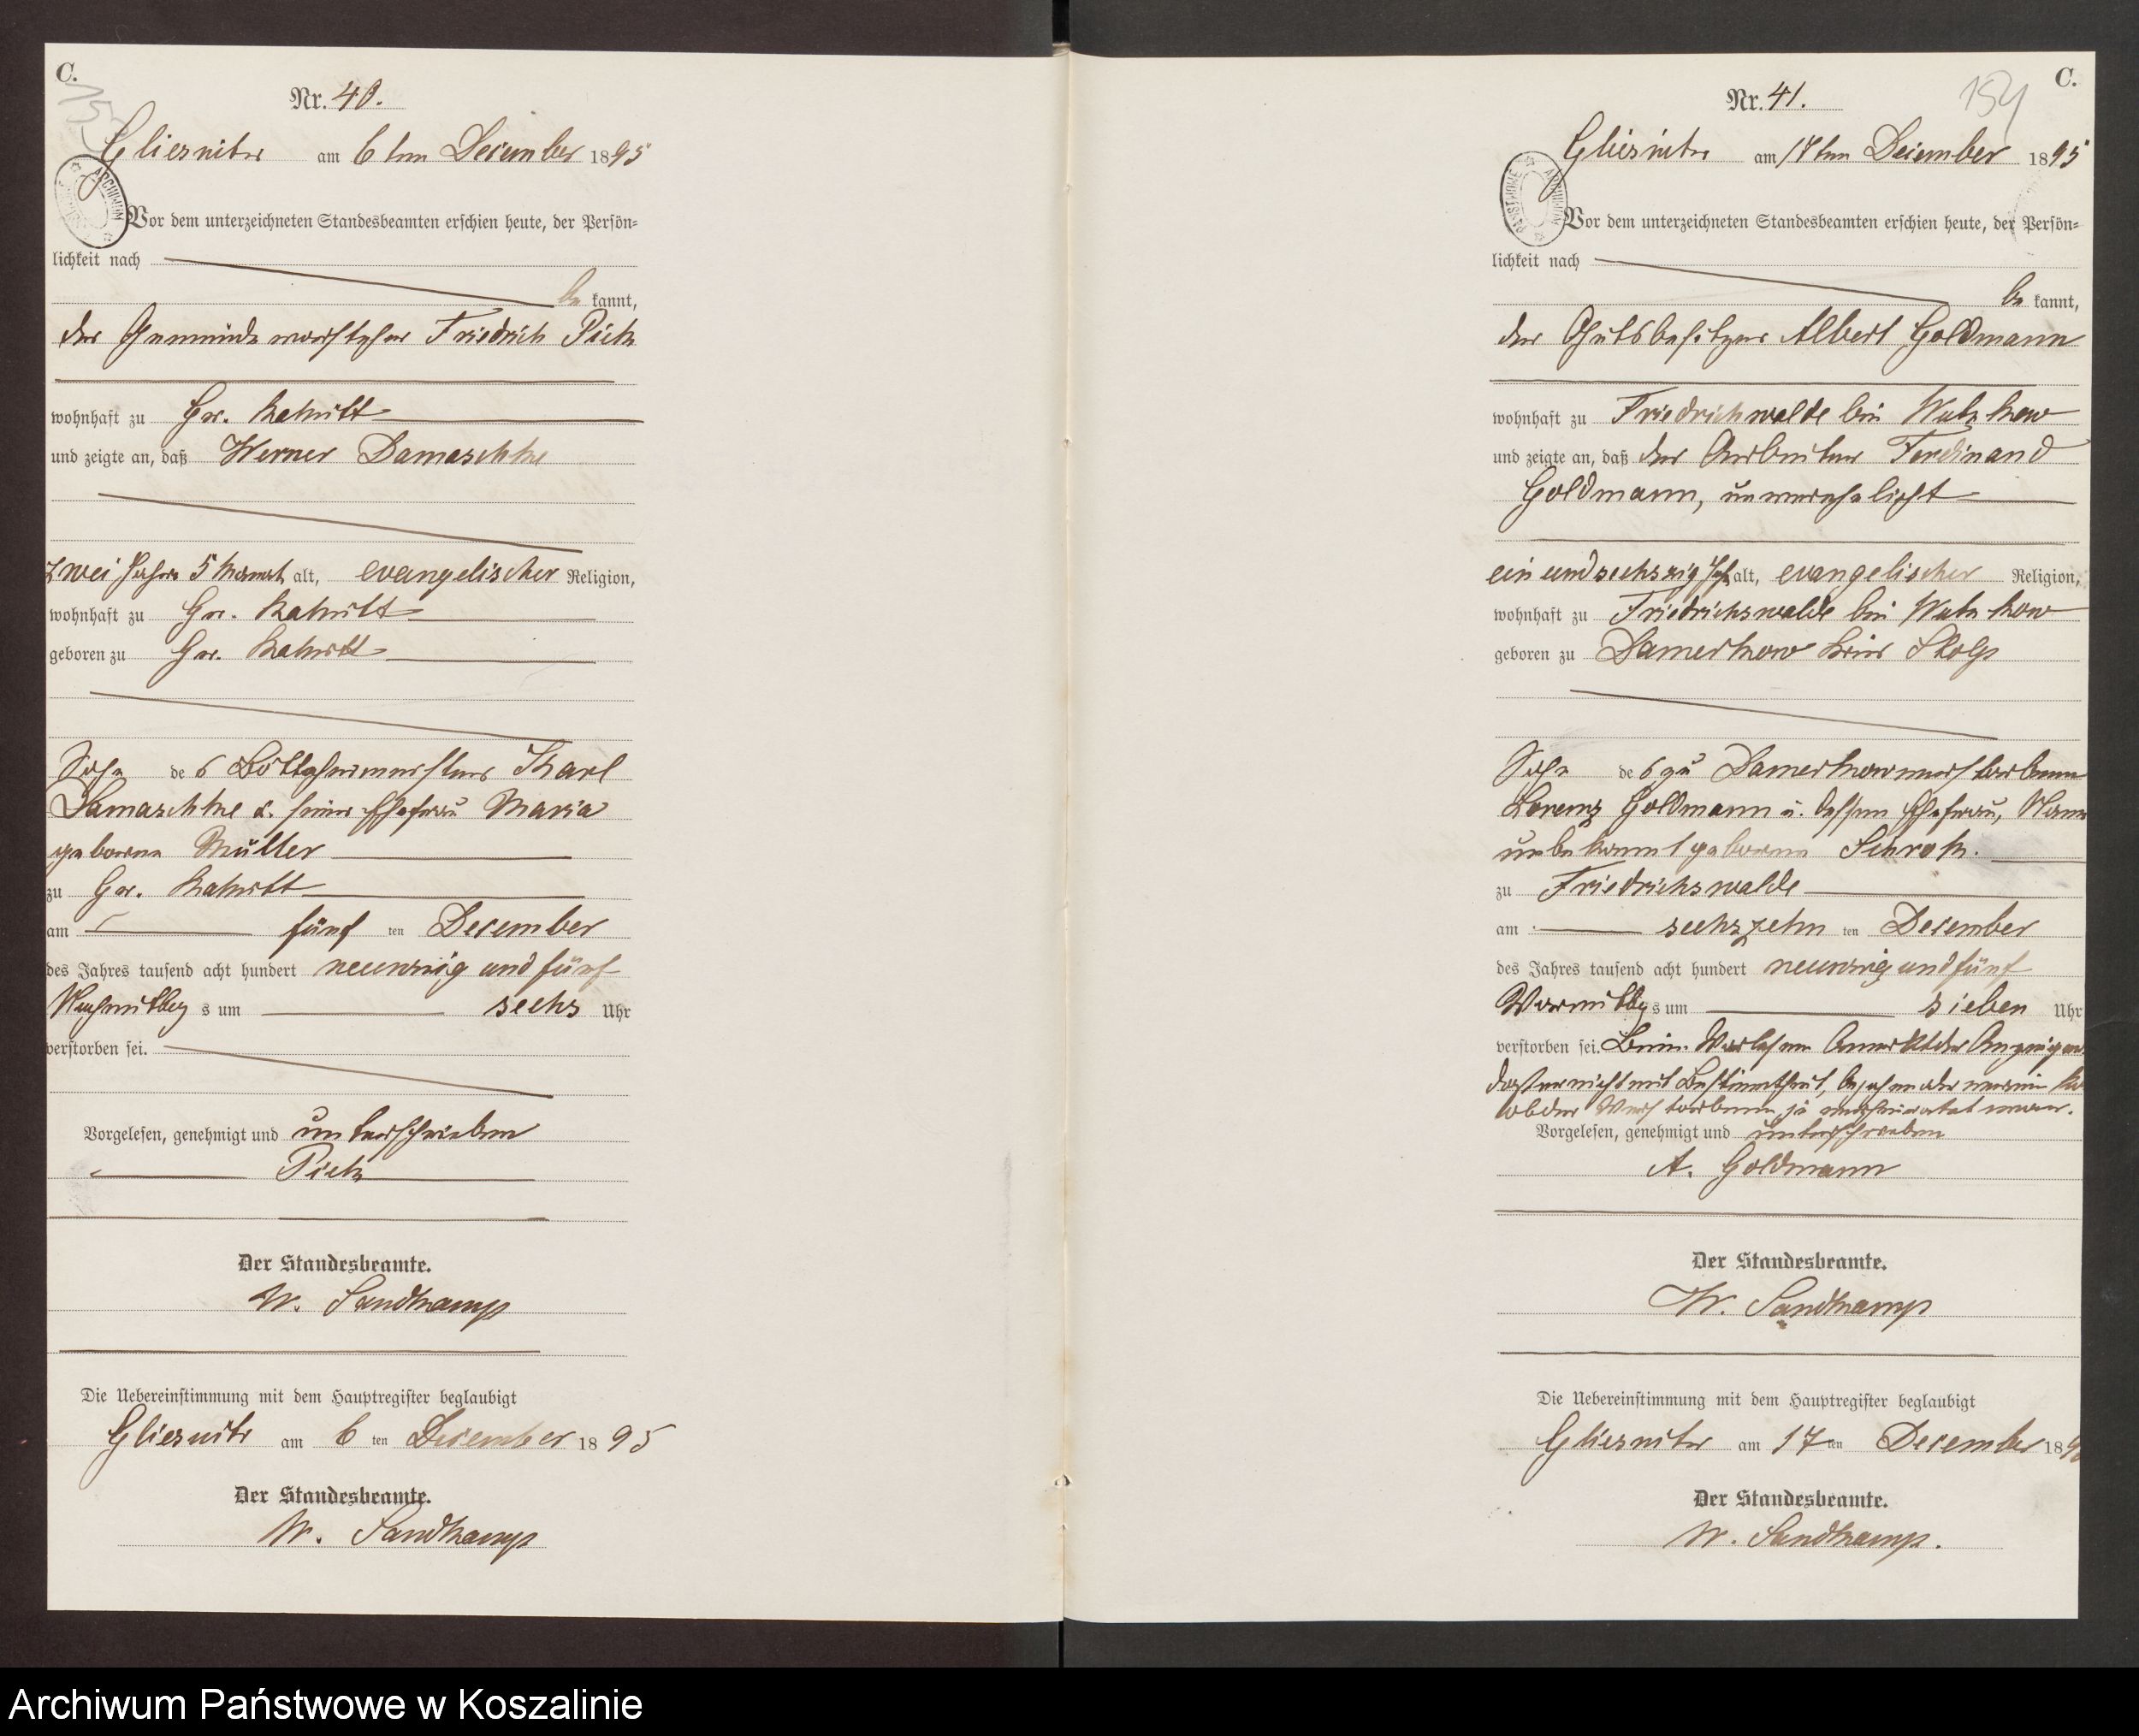 C.
Nr. 40.
Gliesnitz am 6ten December 1895
Vor dem unterzeichneten Standesbeamten erschien heute, der Persön-
lichkeit nach
be kannt,
der Gemeindevorsteher Friedrich Pieh
wohnhaft zu Gr. Rakitt
und zeigte an, daß Werner Damaschke
zwei Jahre 5 Monat alt, evangelischer Religion,
wohnhaft zu Gr. Rakitt
geboren zu Gr. Rakitt
Sohn des Böttchermeisters Karl
Damaschke u. seiner Ehefrau Maria
geborne Müller
zu Gr. Rakitt
am fünf ten December
des Jahres tausend acht hundert neunzig und fünf
Nachmittags um sechs Uhr
verstorben sei.
Vorgelesen, genehmigt und unterschrieben
Pieh
Der Standesbeamte.
W. Sandkamp
Die Uebereinstimmung mit dem Hauptregister beglaubigt
Gliesnitz am 6 ten December 1895
Der Standesbeamte.
W. Sandkamp
C.
154
Nr. 41.
Gliesnitz am 17ten December 1895
Vor dem unterzeichneten Standesbeamten erschien heute, der Persön-
lichkeit nach
be kannt,
der Gutsbesitzer Albert Goldmann
wohnhaft zu Friedrichswalde bei Wutzkow
und zeigte an, daß der Arbeiter Ferdinand
Goldmann, unverehelicht
ein und sechszig Jah alt, evangelischer Religion,
wohnhaft zu Friedrichswalde bei Wutzkow
geboren zu Damerkow Kreis Stolp
Sohn des zu Damerkow verstorbenen
Lorenz Goldmann u. dessen Ehefrau, Name
unbekannt geborne Schroh.
zu Friedrichswalde
am sechszehn ten December
des Jahres tausend acht hundert neunzig und fünf
Vormittags um sieben Uhr
verstorben sei. Beim Vorlesen bemerkt der Anzeigende
daß er nicht mit Bestimmtheit,
ob der Verstorbene je verheiratet war.
Vorgelesen, genehmigt und unterschrieben
A. Goldmann
Der Standesbeamte.
W. Sandkamp
Die Uebereinstimmung mit dem Hauptregister beglaubigt
Gliesnitz am 17 ten December 189
Der Standesbeamte.
W. Sandkamp.
Archiwum Państwowe w Koszalinie